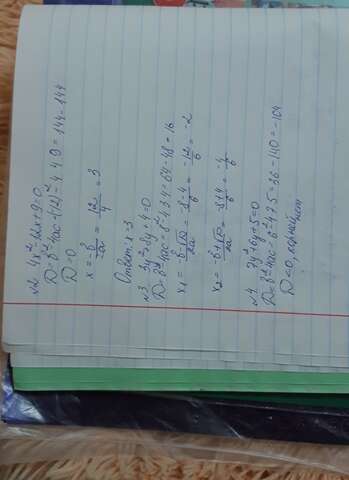 №2 4x²-12x+9=0
D=b²-4ac=(-12)²-4·4·9=144-144
D=0
x=-b/2a=12/4=3
Ответ: x=3
№3 3y²+8y+4=0
D=b²-4ac=8²-4·3·4=64-48=16
x₁=-b-√D/2a=-8-4/6=-12/6=-2
x₂=-b+√D/2a=-8+4/6=-4/6
№4 7y²+6y+5=0
D=b²-4ac=6²-4·7·5=36-140=-104
D<0, корней нет